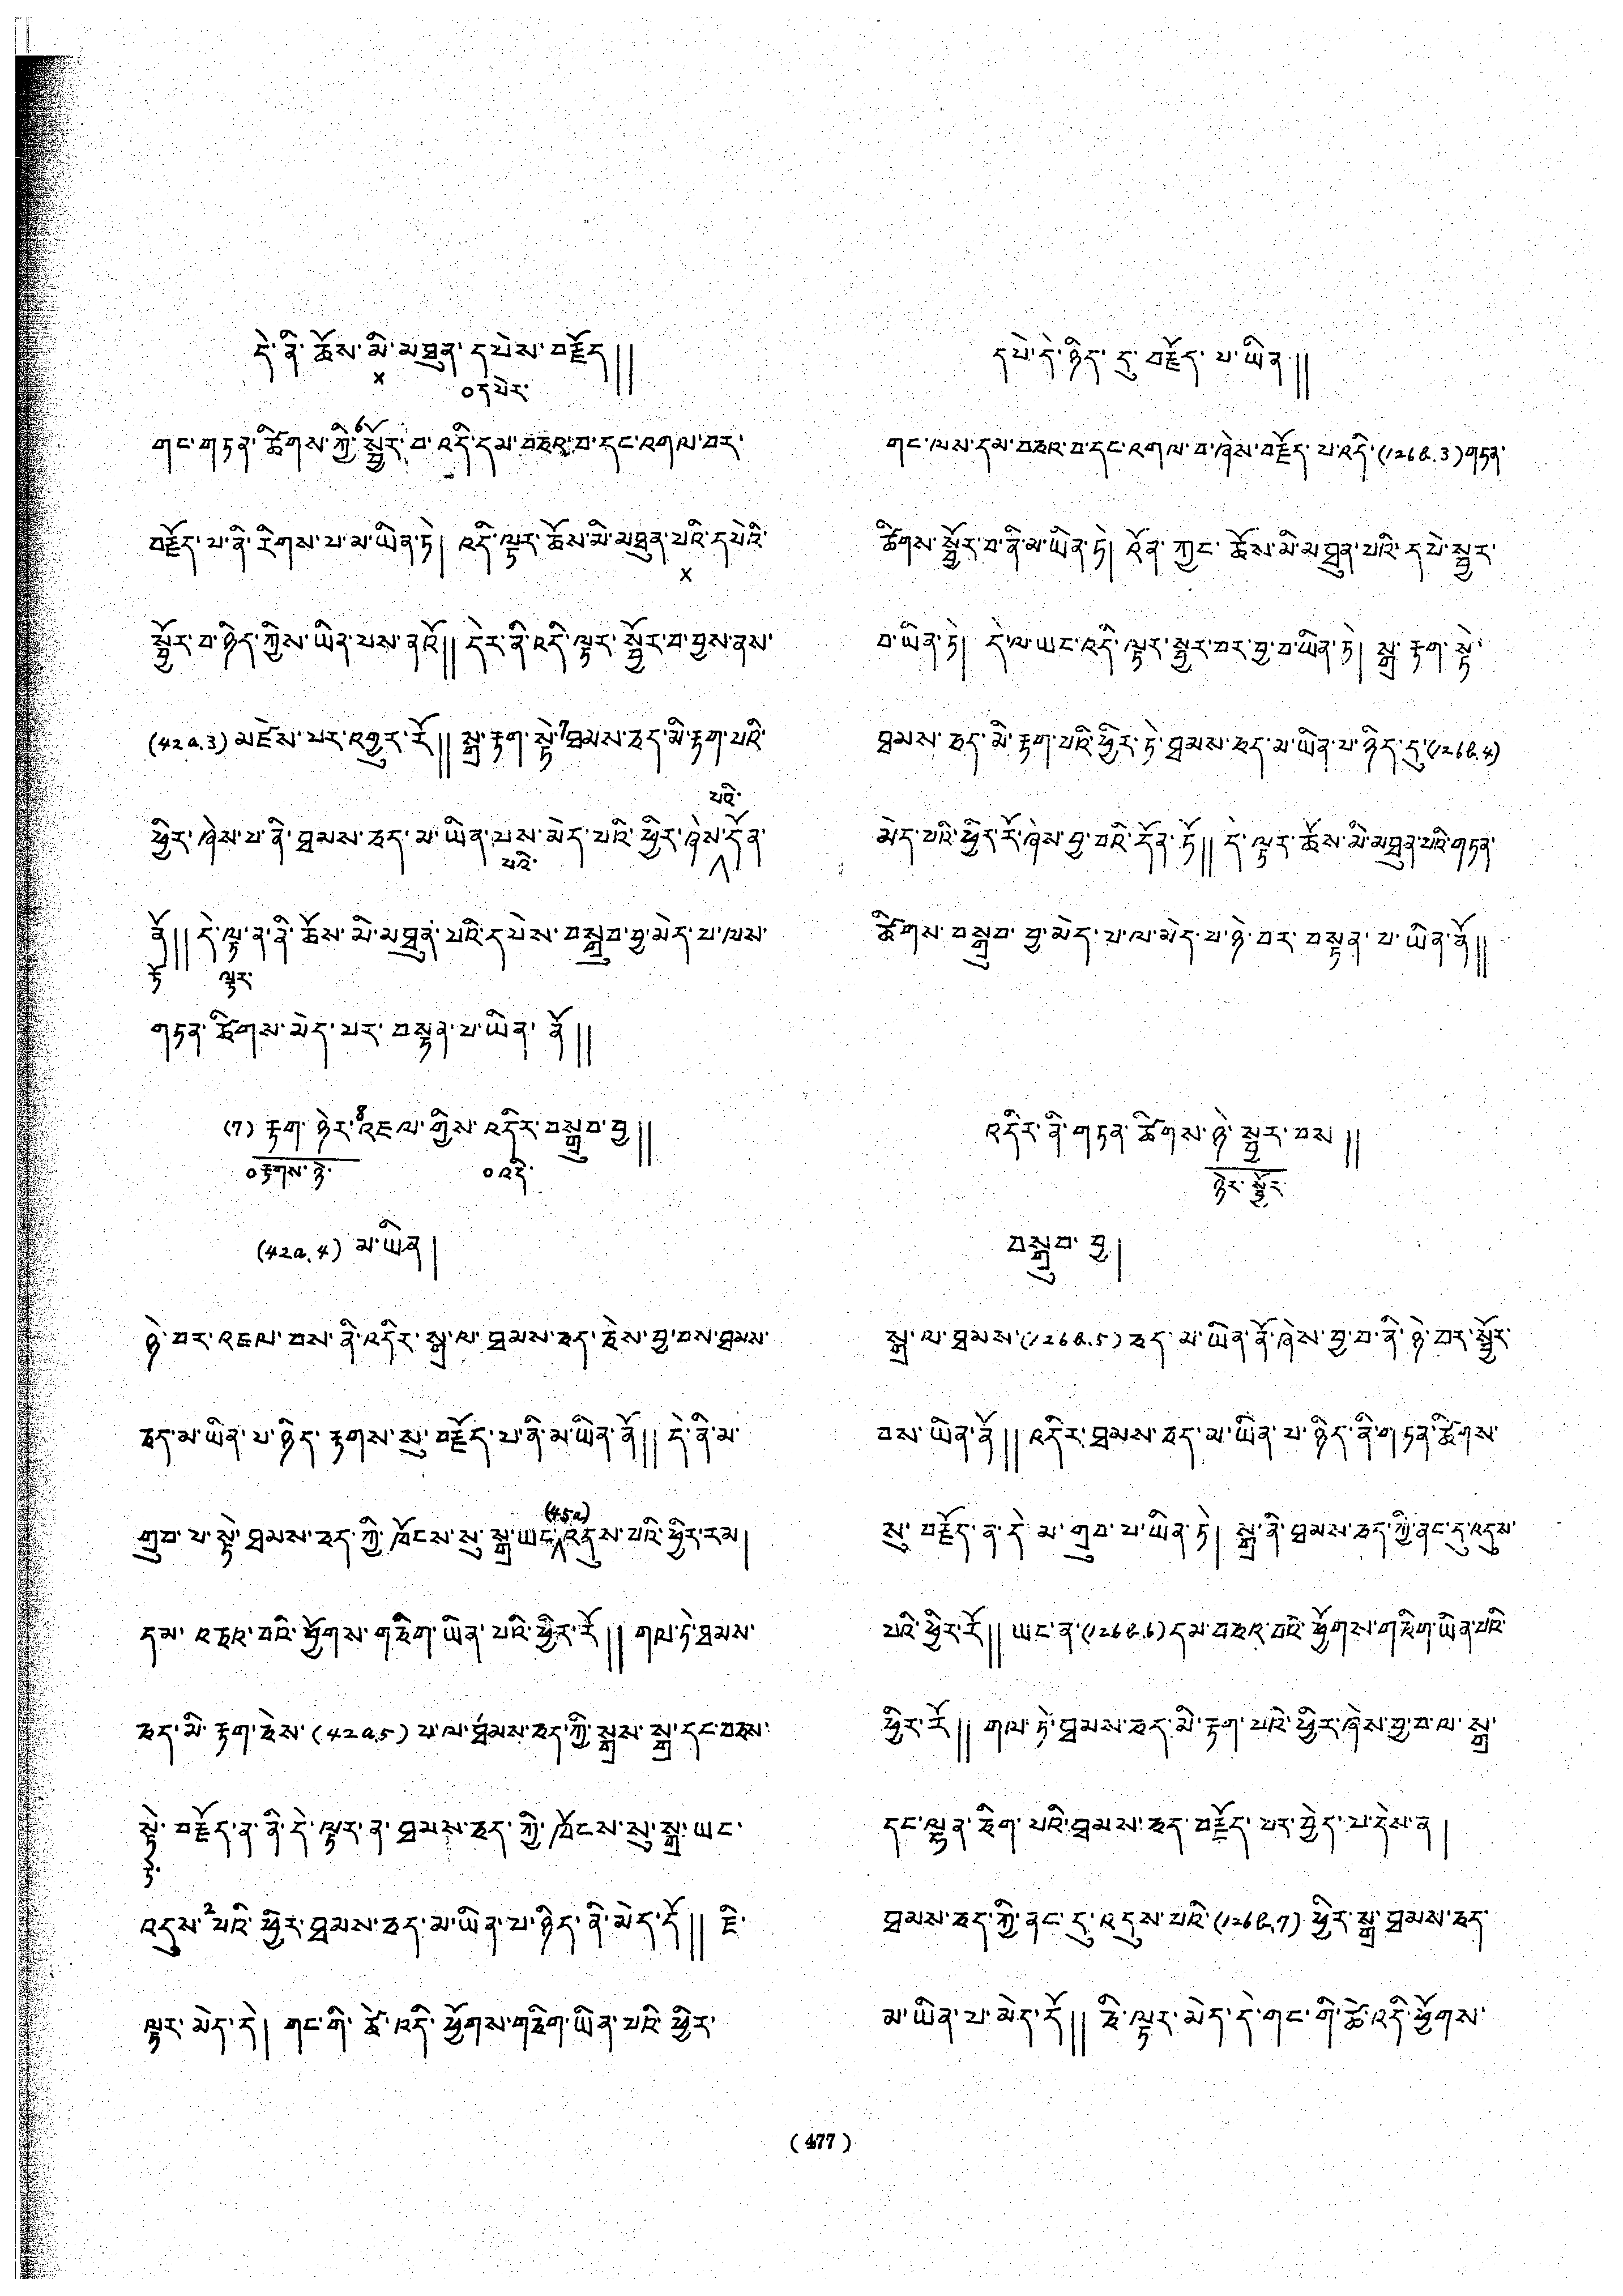 དེ་ནི་ཆོས་མི་མཐུན་དཔེས་བརྗོད༎
× ०དཔེར་
གང་གཏན་ཚིགས་ཀྱི་⁶སྦྱོར་བ་འདི་དམ་བཅའ་བ་དང་འགལ་བར་
བརྗོད་པ་ནི་རིགས་པ་མ་ཡིན་ཏེ། འདི་ལྟར་ཆོས་མི་མཐུན་པའི་དཔེའི་
×
སྦྱོར་བ་ཉིད་ཀྱིས་ཡིན་པས་ནའོ༎ དེར་ནི་འདི་ལྟར་སྦྱོར་བ་བྱས་ནས་
(42a.3) མཛེས་པར་འགྱུར་རོ༎ སྒྲ་རྟག་སྟེ་⁷ཐམས་ཅད་མི་རྟག་པའི་
པའི་
ཕྱིར་ཞེས་པ་ནི་ཐམས་ཅད་མ་ཡིན་པས་མེད་པའི་ཕྱིར་ཞེས་དོན་
པའི་ ^
ནོ༎ དེ་ལྟ་ན་ནི་ཆོས་མི་མཐུན་པའི་དཔེས་བསྒྲུབ་བྱ་མེད་པ་ལས་
ཏོ ལྟར་
གཏན་ཚིགས་མེད་པར་བསྟན་པ་ཡིན་ནོ༎
(7) རྟག་ཉེར་⁸འཇལ་གྱིས་འདིར་བསྒྲུབ་བྱ༎
०རྟགས་ཉེ་ ०འདི་
(42a.4) མ་ཡིན།
ཉེ་བར་འཇལ་བས་ནི་འདིར་སྒྲ་ལ་ཐམས་ཅད་ཅེས་བྱ་བས་ཐམས་
ཅད་མ་ཡིན་པ་ཉིད་རྟགས་སུ་བརྗོད་པ་ནི་མ་ཡིན་ནོ༎ དེ་ནི་མ་
(45a)
གྲུབ་པ་སྟེ་ཐམས་ཅད་ཀྱི་ཁོངས་སུ་སྒྲ་ཡང་འདུས་པའི་ཕྱིར་རམ།
དམ་བཅའ་བའི་ཕྱོགས་གཅིག་ཡིན་པའི་ཕྱིར་རོ༎ གལ་ཏེ་ཐམས་
ཅད་མི་རྟག་ཅེས་(42a.5) པ་ལ་ཐམས་ཅད་ཀྱི་སྒྲས་སྒྲ་དང་བཅས་
སྟེ་བརྗོད་ན་ནི་དེ་ལྟར་ན་ཐམས་ཅད་ཀྱི་ཁོངས་སུ་སྒྲ་ཡང་
ཏེ་
འདུས་²པའི་ཕྱིར་ཐམས་ཅད་མ་ཡིན་པ་ཉིད་ནི་མེད་དོ༎ ཇི་
ལྟར་མེད་དེ། གང་གི་ཚེ་འདི་ཕྱོགས་གཅིག་ཡིན་པའི་ཕྱིར་
དཔེ་དེ་ཉིད་དུ་བརྗོད་པ་ཡིན༎
གང་ལས་དམ་བཅའ་བ་དང་འགལ་བ་ཞེས་བརྗོད་པ་འདི་(126b.3)གཏན་
ཚིགས་སྦྱོར་བ་ནི་མ་ཡིན་ཏེ། འོན་ཀྱང་ཆོས་མི་མཐུན་པའི་དཔེ་སྦྱར་
བ་ཡིན་ཏེ། དེ་ལ་ཡང་འདི་ལྟར་སྦྱར་བར་བྱ་བ་ཡིན་ཏེ། སྒྲ་རྟག་སྟེ་
ཐམས་ཅད་མི་རྟག་པའི་ཕྱིར་ཏེ་ཐམས་ཅད་མ་ཡིན་པ་ཉིད་དུ་(126b.4)
མེད་པའི་ཕྱིར་རོ་ཞེས་བྱ་བའི་དོན་ཏོ༎ དེ་ལྟར་ཆོས་མི་མཐུན་པའི་གཏན་
ཚིགས་བསྒྲུབ་བྱ་མེད་པ་ལ་མེད་པ་ཉེ་བར་བསྟན་པ་ཡིན་ནོ༎
འདིར་ནི་གཏན་ཚིགས་ཉེ་སྦྱར་བས༎
ཉེར་སྦྱོར་
བསྒྲུབ་བྱ།
སྒྲ་ལ་ཐམས་(126b.5)ཅད་མ་ཡིན་ནོ་ཞེས་བྱ་བ་ནི་ཉེ་བར་སྦྱོར་
བས་ཡིན་ནོ༎ འདིར་ཐམས་ཅད་མ་ཡིན་པ་ཉིད་ནི་གཏན་ཚིགས་
སུ་བརྗོད་ན་དེ་མ་གྲུབ་པ་ཡིན་ཏེ། སྒྲ་ནི་ཐམས་ཅད་ཀྱི་ནང་དུ་འདུས་
པའི་ཕྱིར་རོ༎ ཡང་ན་(126b.6)དམ་བཅའ་བའི་ཕྱོགས་གཅིག་ཡིན་པའི་
ཕྱིར་རོ༎ གལ་ཏེ་ཐམས་ཅད་མི་རྟག་པའི་ཕྱིར་ཞེས་བྱ་བ་ལ་སྒྲ་
དང་ལྷན་ཅིག་པའི་ཐམས་ཅད་བརྗོད་པར་བྱེད་པ་དེས་ན།
ཐམས་ཅད་ཀྱི་ནང་དུ་འདུས་པའི་(126b.7)ཕྱིར་སྒྲ་ཐམས་ཅད་
མ་ཡིན་པ་མེད་དོ༎ ཇི་ལྟར་མེད་དེ་གང་གི་ཚེ་འདི་ཕྱོགས་
(477)